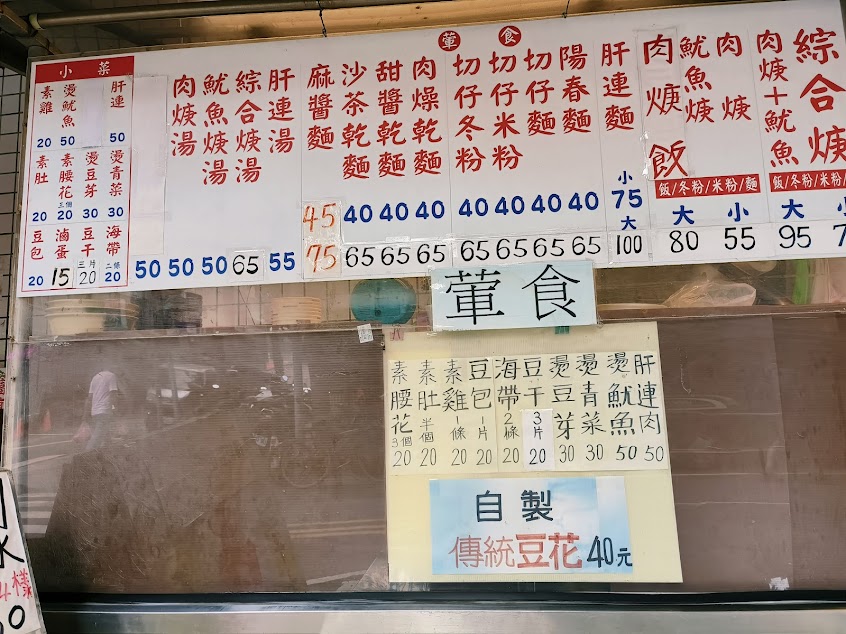 葷食
小菜
素雞 20
燙魷魚 50
肝連 50
素肚 20
素腰花 三個 20
燙豆芽 30
燙青菜 30
豆包 20
滷蛋 15
豆干 三片 20
海帶 二條 20
50
肉焿湯 50
魷魚焿湯 50
綜合焿湯 65
肝連湯 55
麻醬麵 45 75
沙茶乾麵 40 65
甜醬乾麵 40 65
肉燥乾麵 40 65
切仔冬粉 40 65
切仔米粉 40 65
切仔麵 40 65
陽春麵 40 65
肝連麵 小 75 大 100
肉焿飯
魷魚焿
肉焿
飯/冬粉/米粉/麵
大 80
小 55
肉焿+魷魚
綜合焿
飯/冬粉/米粉
大 95
小
葷食
素腰花 3個 20
素肚 半個 20
素雞 1條 20
豆包 1片 20
海帶 2條 20
豆干 3片 20
燙豆芽 30
燙青菜 30
燙魷魚 50
肝連肉 50
自製
傳統豆花40元